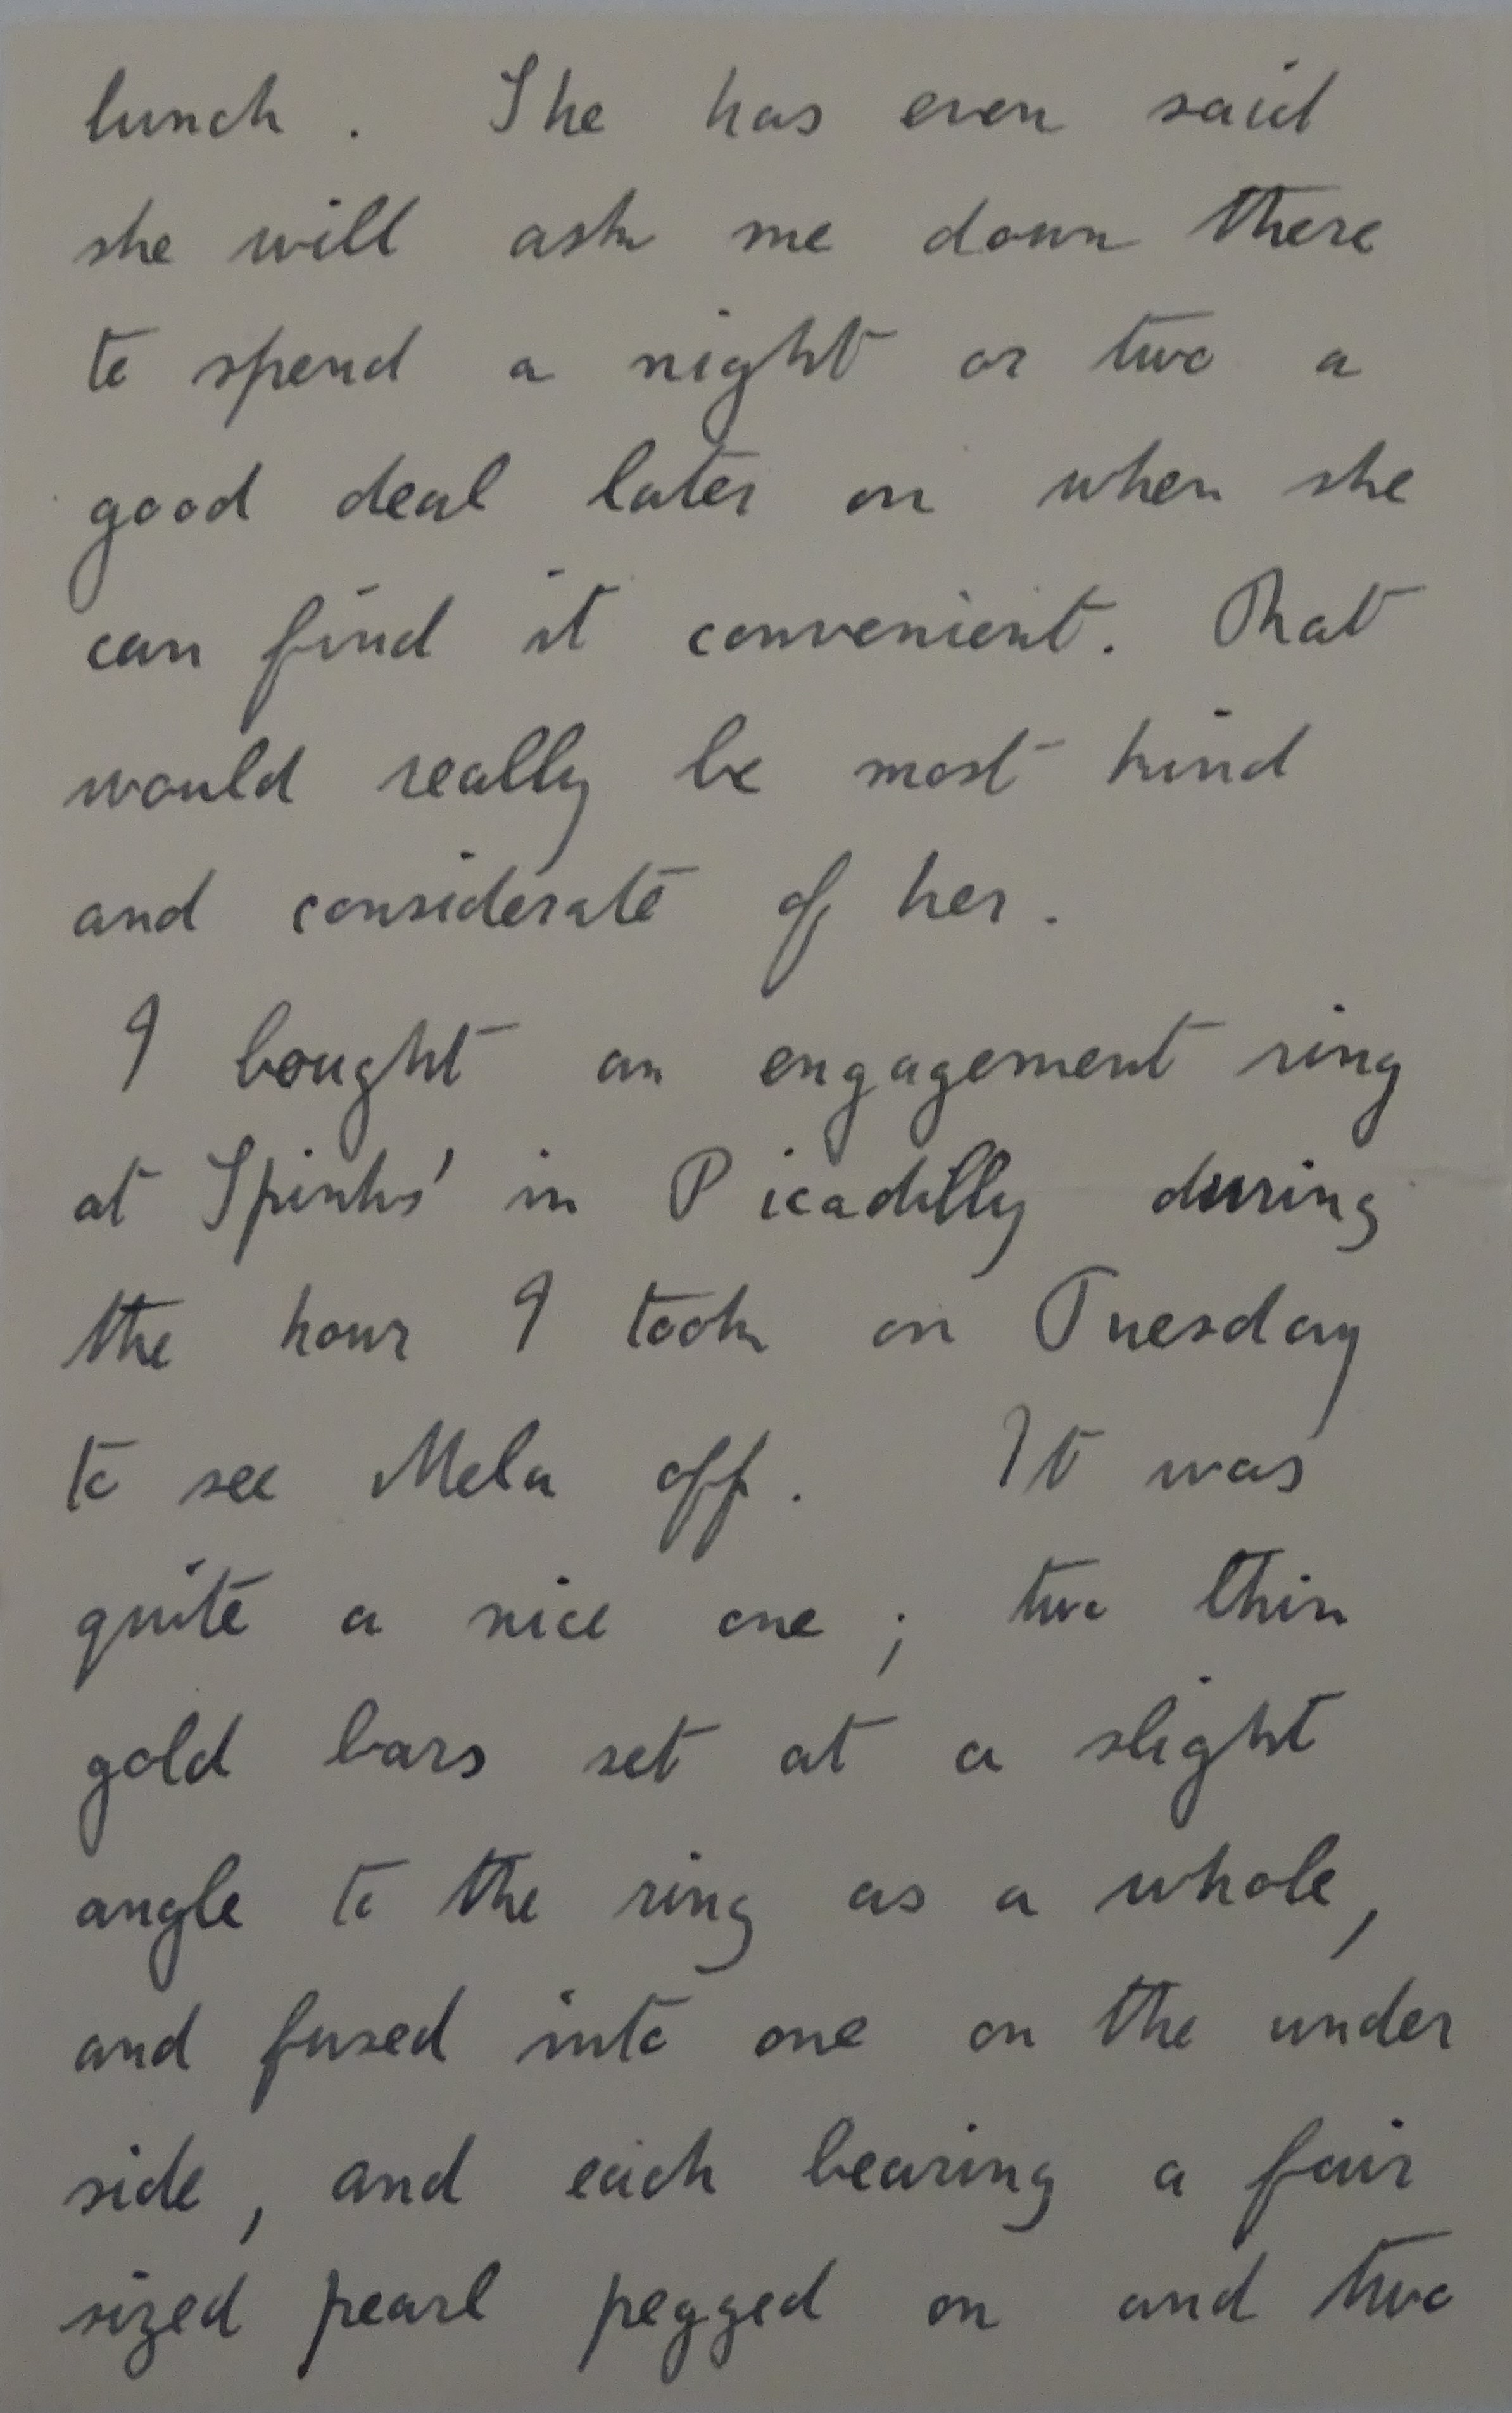 lunch. She has even said
she will ask me down there
to spend a night or two a
good deal later on when she
can find it convenient. That
would really be most kind
and considerate of her.
I bought an engagement ring
at Spinks' in Picadilly during
the hour I took on Tuesday
to see Mela off. It was
quite a nice one; two thin
gold bars set at a slight
angle to the ring as a whole,
and fused into one on the under
side, and each bearing a fair
sized pearl pegged on and two